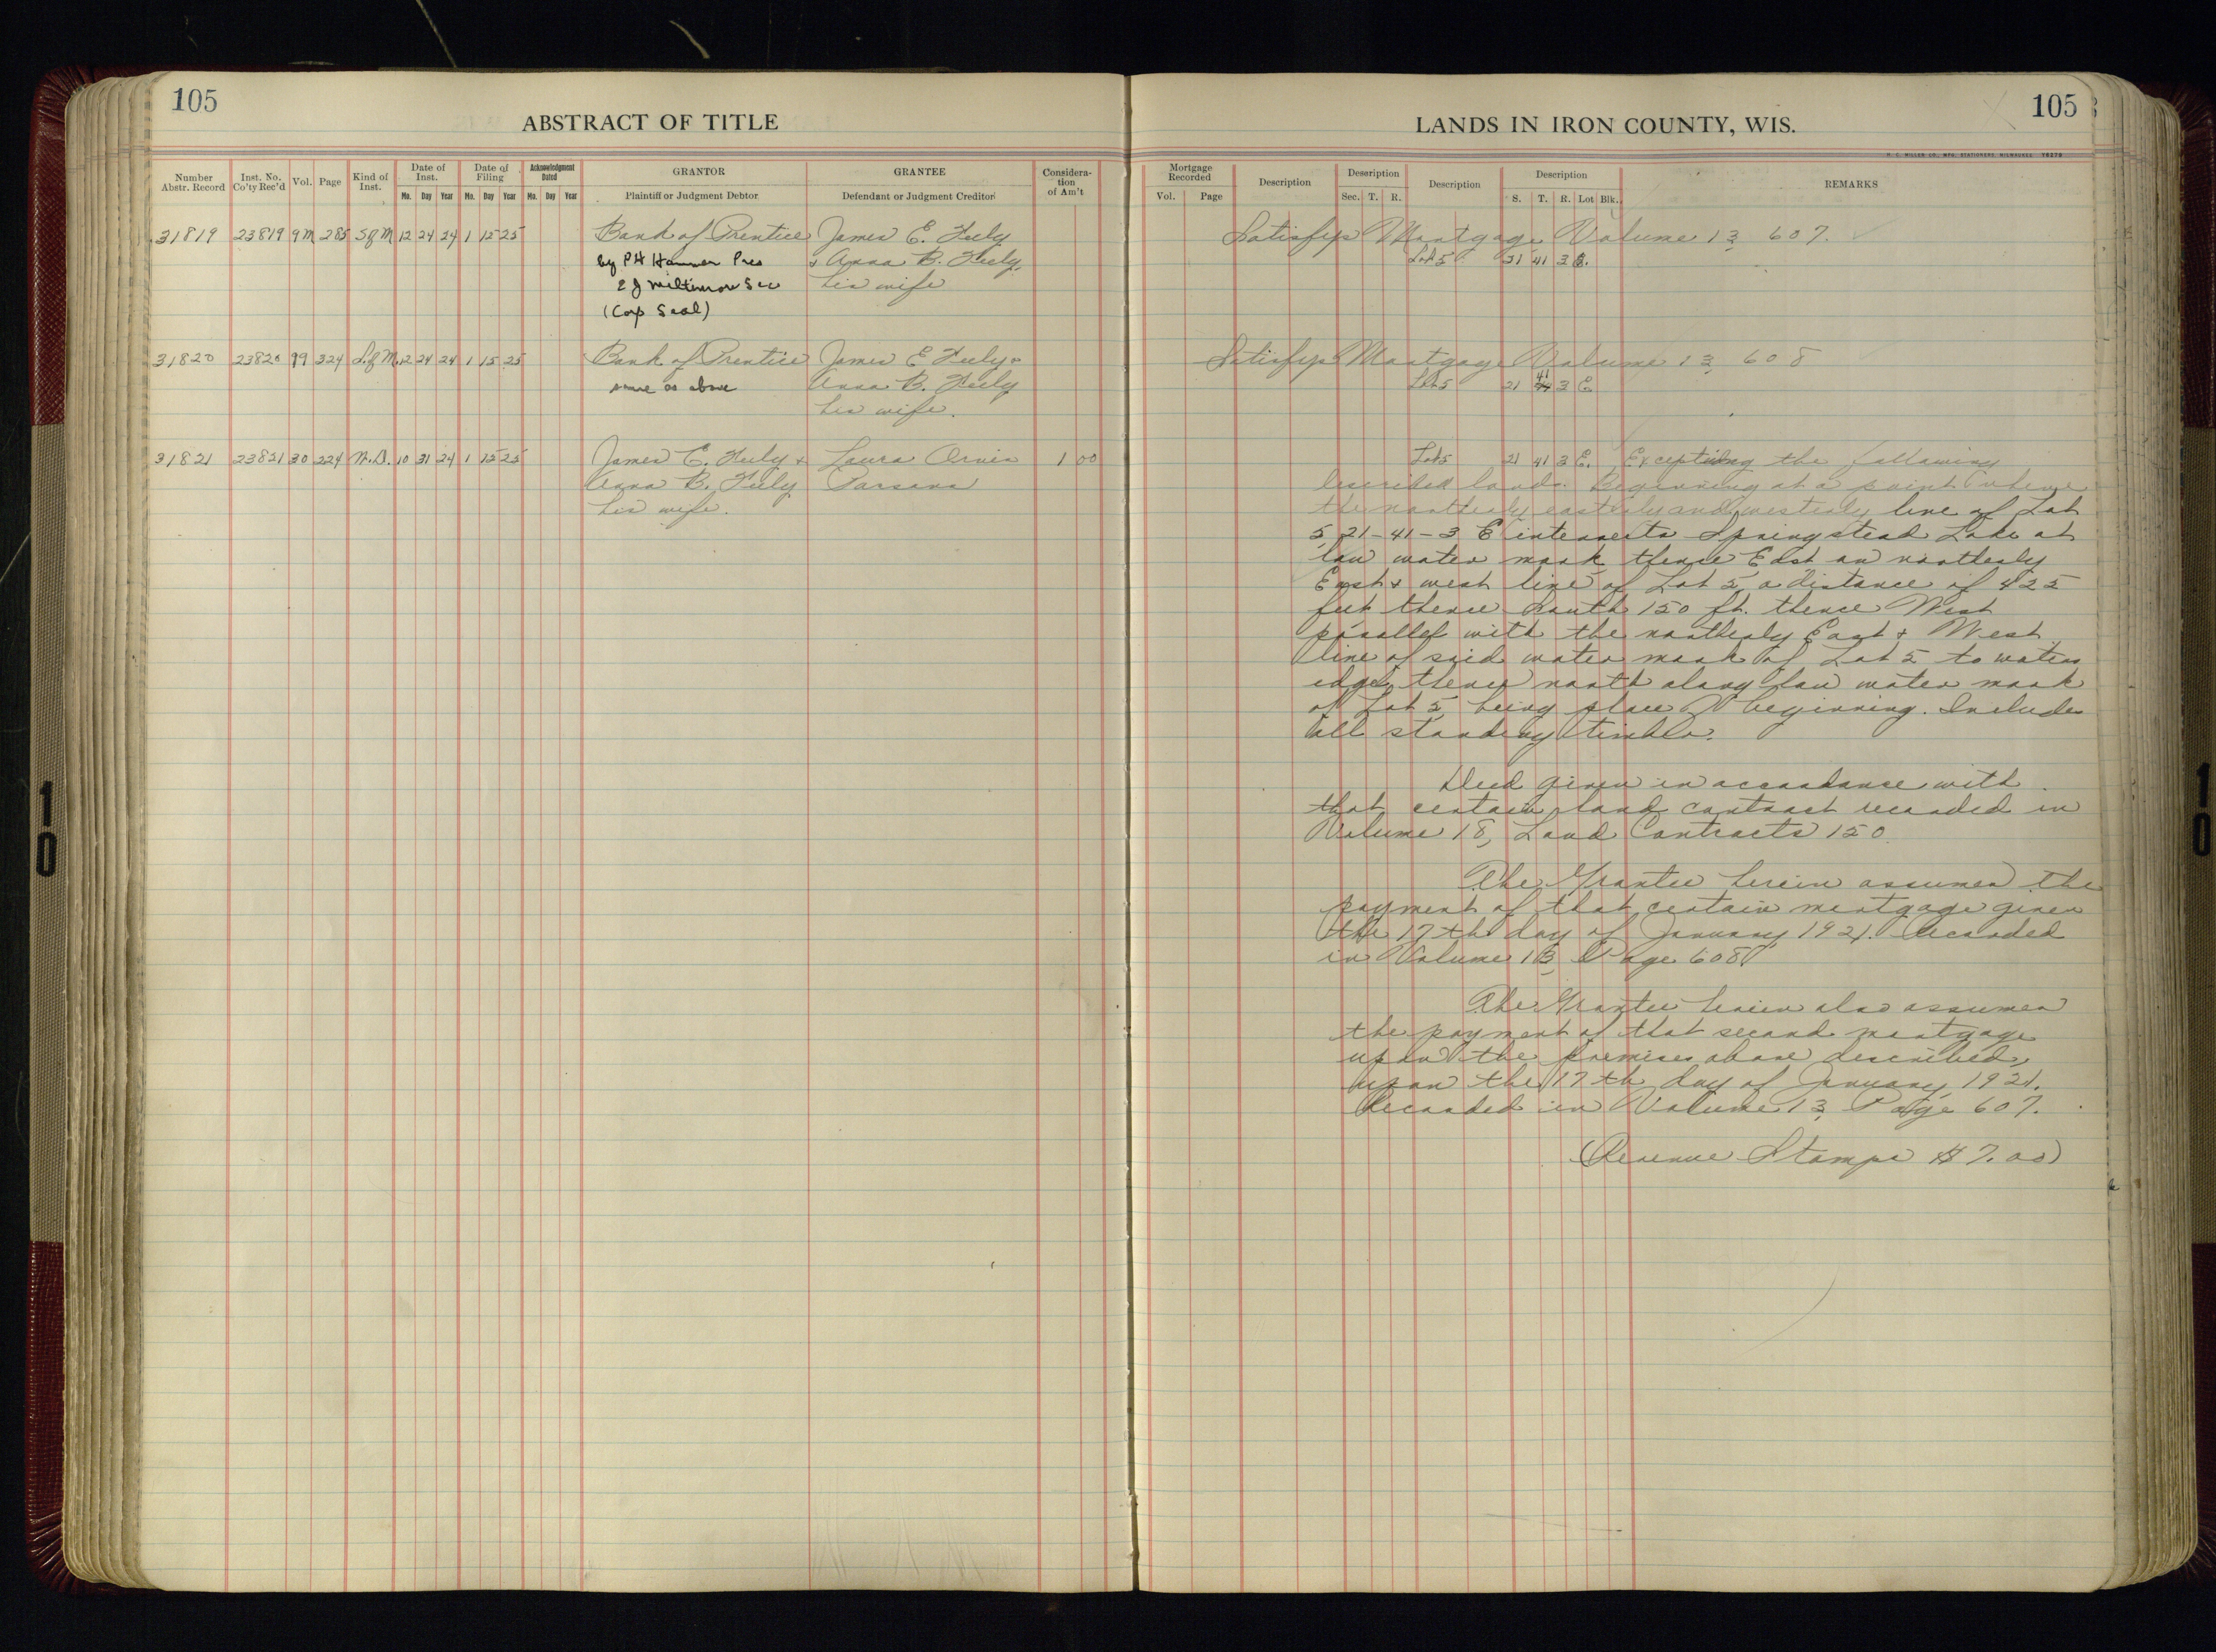 105
ABSTRACT OF TITLE
Number Abstr. Record | Inst. No. Co'ty Rec'd | Vol. | Page | Kind of Inst. | Date of Inst. Mo. Day Year | Date of Filing Mo. Day Year | Acknowledgment Dated Mo. Day Year | GRANTOR Plaintiff or Judgment Debtor | GRANTEE Defendant or Judgment Creditor | Consideration of Am't
31819 23819 9M 285 S of M 12 24 24 1 15 25 Bank of Prentice James E. Feely
by P H Hammer Pres & Anna B. Feely,
E J Miltimore Sec his wife
(Corp Seal)
31820 23820 99 324 S of M. 12 24 24 1 15 25 Bank of Prentice James E Feely &
same as above Anna B. Feely
his wife.
31821 23821 30 224 W.D. 10 31 24 1 15 25 James E. Feely & Laura Orvis 1 00
Anna B. Feely Parsons
his wife.
105
LANDS IN IRON COUNTY, WIS.
H. C. MILLER CO., MFG. STATIONERS, MILWAUKEE
Mortgage Recorded Vol. Page | Description | Description Sec. T. R. | Description | Description S. T. R. Lot Blk. | REMARKS
Satisfys Mortgage Volume 13 607.
Lot 5 21 41 3 E.
Satisfys Mortgage Volume 13 608
Lot 5 21 41 3 E.
Lot 5 21 41 3 E. Excepting the following
described lands. Beginning at a point where
the northerly easterly and westerly line of Lot
5, 21-41-3 E intersects Springstead Lake at
low water mark thence East on northerly
East & west line of Lot 5, a distance of 425
feet thence South 150 ft. thence West
parallel with the northerly East & West
line of said water mark of Lot 5 to waters
edge, thence north along low water mark
of Lot 5, being place of beginning. Includes
all standing timber.
Deed given in accordance with
that certain land contract recorded in
Volume 18, Land Contracts 150.
The Grantee herein assumes the
payment of that certain mortgage given
the 17th day of January, 1921. Recorded
in Volume 13, Page 608.
The Grantee herein also assumes
the payment of that second mortgage
upon the premises above described,
upon the 17th day of January, 1921.
Recorded in Volume 13, Page 607.
(Revenue Stamps $7.00)
10
10